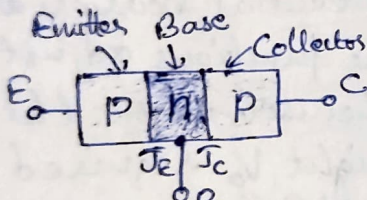 Emitter Base
Collector
E
p n p
C
JE JC